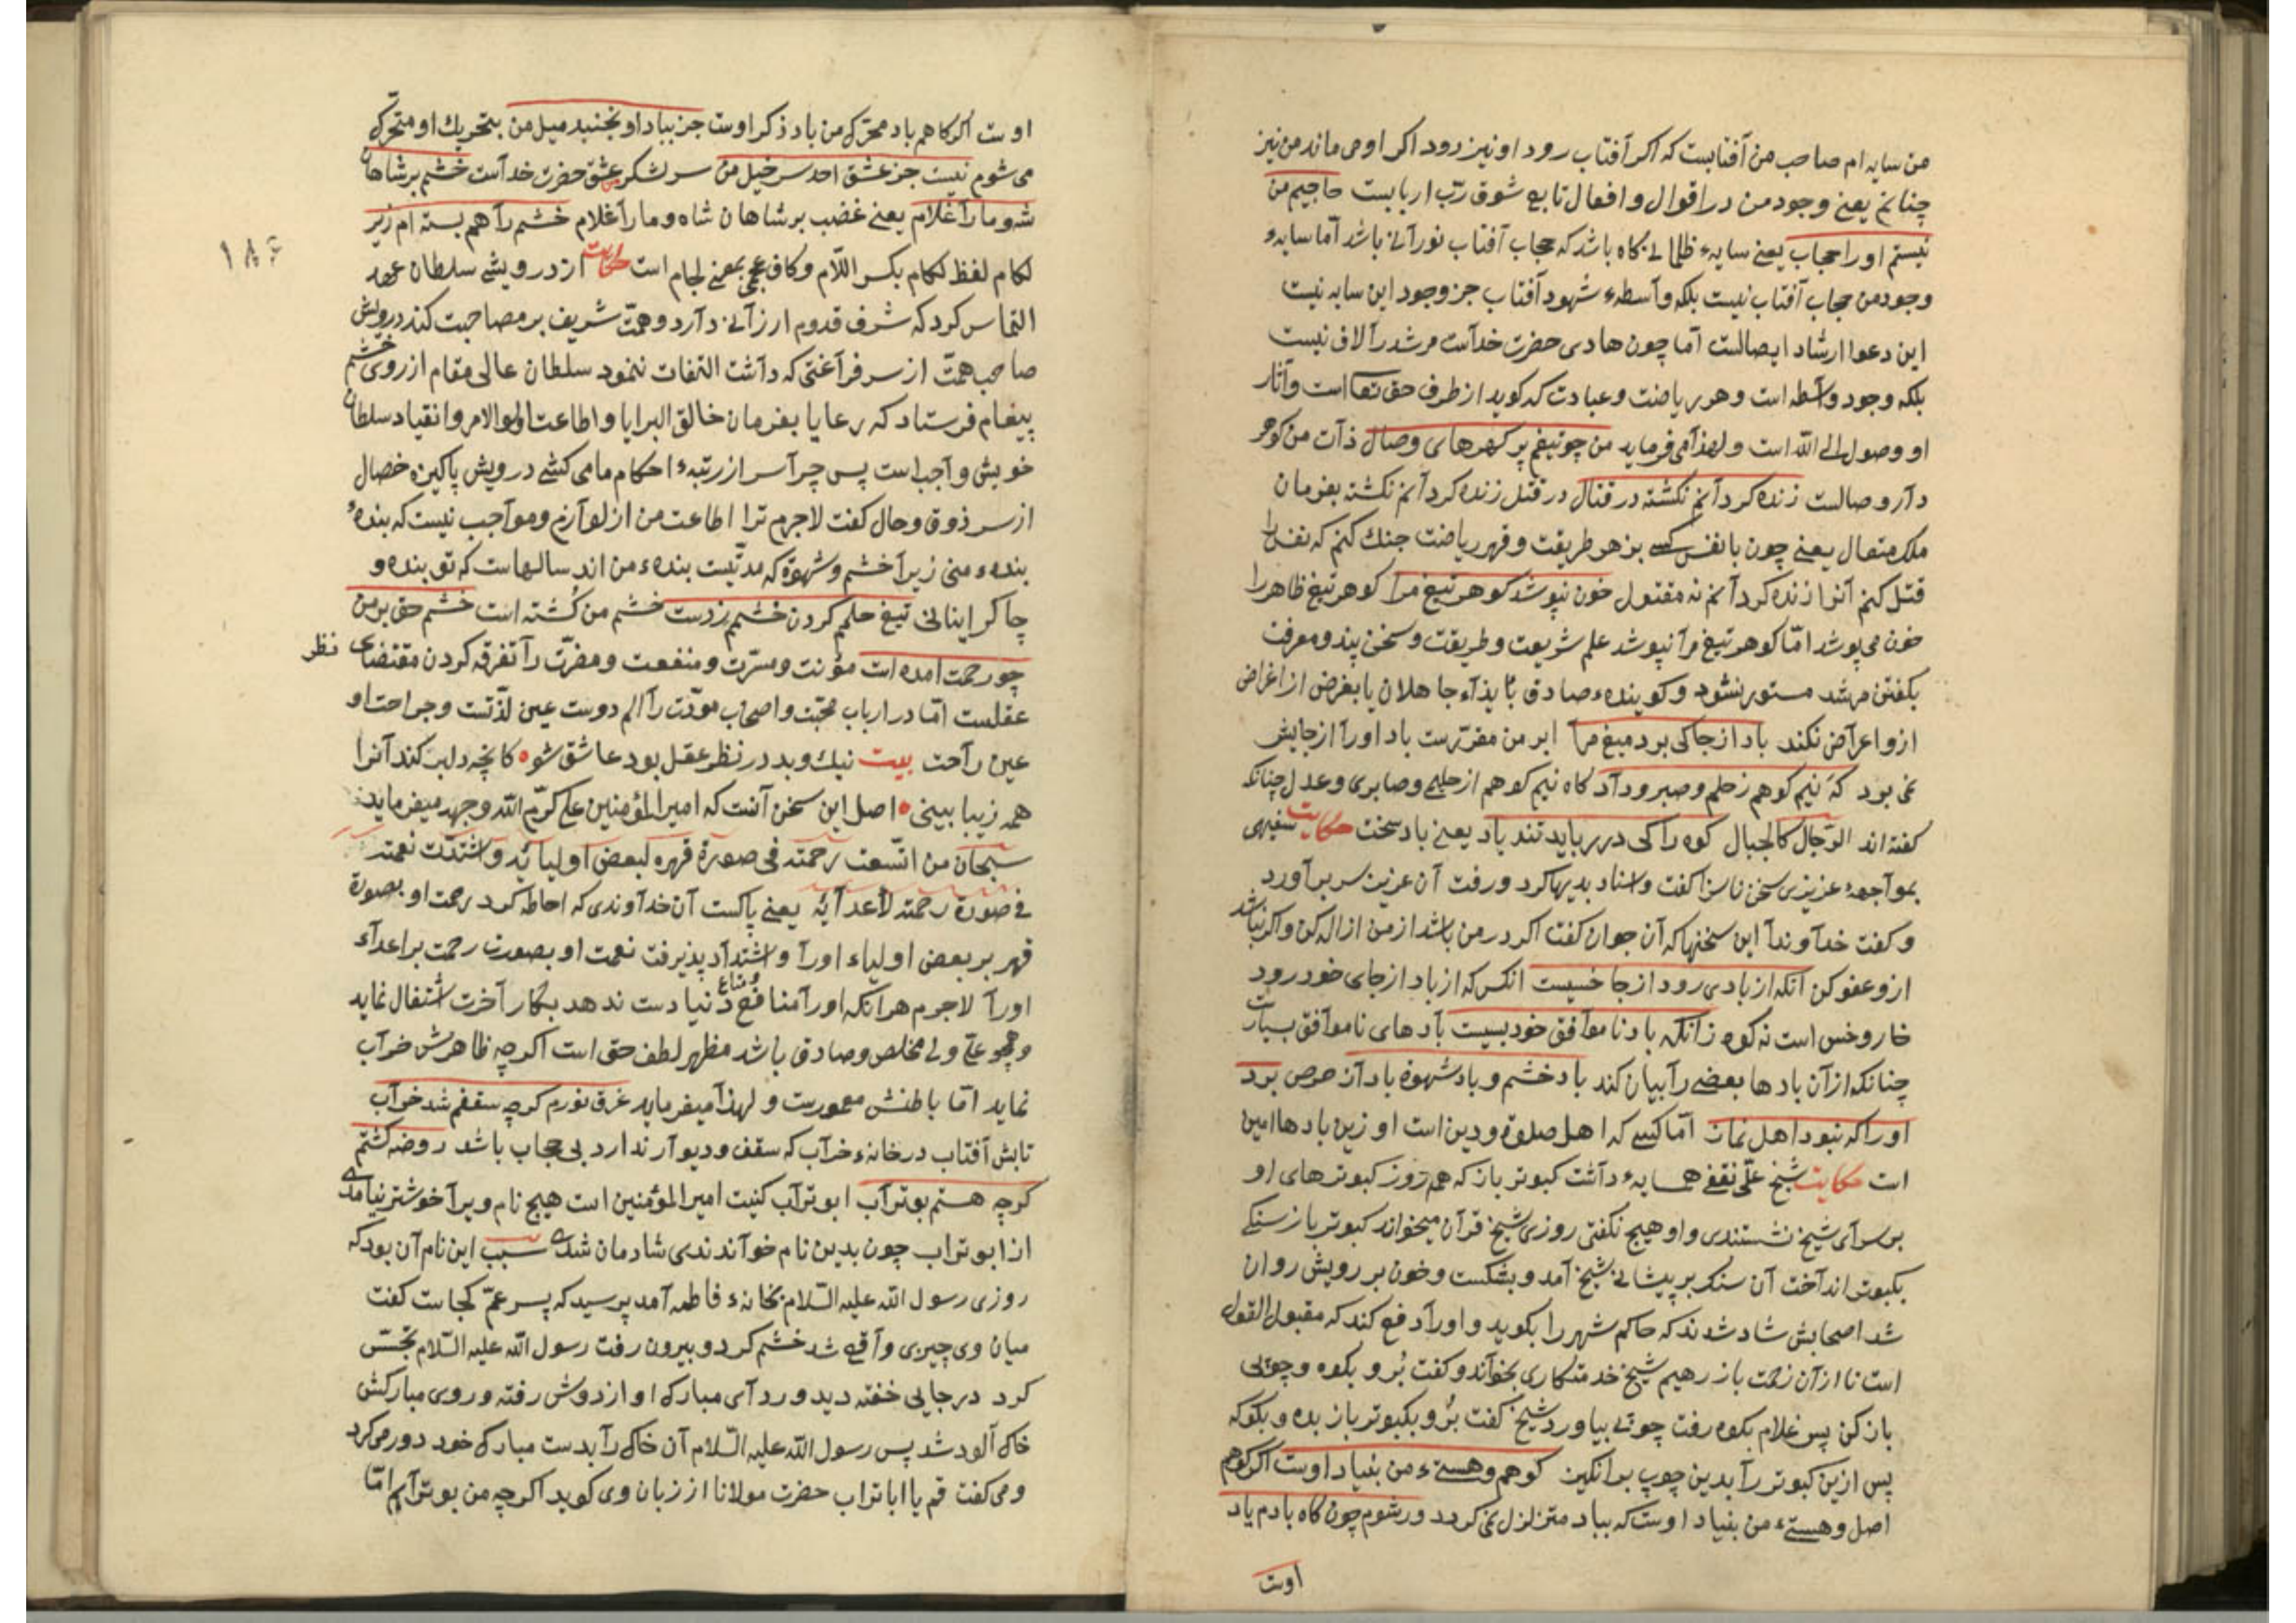 من سایه ام صاحب من آفتابست که اکر آفتاب رود او نیز رود اکر او می ماند من نیز
چنانم یعنی وجود من در اقوال و افعال تابع شوق ربّ اربابست حاجبم من
نیستم او را حجاب یعنی سایهء ظلمانی کاه باشد که حجاب آفتاب نورانی باشد امّا سایهء
وجود من حجاب آفتاب نیست بلکه واسطهء شهود آفتاب جز وجود این سایه نیست
این دعوا ارشاد ایصالست امّا چون هادی حضرت خداست مرشد را لاف نیست
بلکه وجود واسطه است و هر ریاضت و عبادت که کوید از طرف حق تعا است و آثار
او وصول الی الله است و لهذا می فرماید من چو تیغم پر کهرهای وصال ذات من کوهر
دار وصالست زنده کردانم نکشته در قتال در قتل زنده کردانم نکشته بفرمان
ملک متعال یعنی چون با نفس کسی بزهر طریقت و قهر ریاضت جنك کنم که نفس را
قتل کنم آنرا زنده کردانم نه مقتول خون نپوشد کوهر تیغ مرا کوهر تیغ ظاهر را
خون می پوشد امّا کوهر تیغ مرا نپوشد علم شریعت و طریقت و سخن پند و معرفت
بکفتن مرشد مستور نشود و کویندهء صادق با یذاء جاهلان یا بغرض از اغراض
ازو اعراض نکند باد از جا کی برد میغ مرا ابر من مقرّرست باد او را از جایش
نمی برد که نیم کوهم زحلم و صبر و داد کاه نیم کوهم از حلیمی و صابری و عدل چنانکه
کفته اند الرّجال کالجبال کوه را کی در رباید تند باد یعنی باد سخت حکایت سفیهی
بمواجههء عزیزی سخن ناسزا کفت و اسناد بدیها کرد و رفت آن عزیز سر برآورد
و کفت خداوندا این سخنها که آن جوان کفت اکر در من باشد از من ازاله کن و اکر نباشد
ازو عفو کن آنکه از بادی رود از جا خسیست انکس که از باد از جای خود رود
خار و خس است نه کوه زانکه باد ناموافق خود بسیست بادهای ناموافق بسیارست
چنانکه از آن بادها بعضی را بیان کند باد خشم و باد شهوة باد آز حرص برد
او را که نبود اهل نماز امّا کسی که اهل صلوة و دین است او زین بادها امین
است حکایت شیخ علّی همسایهء داشت کبوتر باز که هر روز کبوترهای او
بر سرای شیخ نشستندی و او هیچ نکفتی روزی شیخ قرآن میخواند کبوتر باز سنکی
بکبوتر انداخت آن سنك بر پیشانی شیخ آمد و بشکست و خون بر رویش روان
شد اصحابش شاد شدند که حاکم شهر را بکوید و او را دفع کند که مقبول القول
است تا از آن زحمت باز رهیم شیخ خدمتکاری بخواند و کفت برو بکوه و چوبی
باز کن پس غلام بکوه رفت چوبی بیاورد شیخ کفت برو و بکبوتر باز بده و بکو که
پس ازین کبوتر را بدین چوپ برانکیز کوهم و هستیء من بنیاد اوست اکر کوهم
اصل و هستیء من بنیاد اوست که بباد متزلزل نمی کردد ور شوم چون کاه بادم یاد
اوست
اوست اکر کاهم باد محرّك من یاد ذکر اوست جز بباد او نجنبد میل من بتحریك او متحرّك
می شوم نیست جز عشق احد سر خیل من سر لشکر من عشق حضرت خداست خشم بر شاهان
شه و ما را غلام یعنی غضب بر شاهان شاه و ما را غلام خشم را هم بسته ام زیر
لکام لفظ لکام بکسر اللّام و کاف عجمی بمعنی لجام است حکایت از درویشی سلطان عهد
التماس کرد که شرف قدوم ارزانی دارد و همّت شریف بر مصاحبت کند درویش
صاحب همّت از سر فراغتی که داشت التفات ننمود سلطان عالی مقام از روی خشم
پیغام فرستاد که رعایا بفرمان خالق البرایا و اطاعت اولو الامر و انقیاد سلطان
خویش واجب است پس چرا سر از رتبهء احکام ما می کشی درویش پاکیزه خصال
از سر ذوق و حال کفت لاجرم ترا اطاعت من از لوازم و مواجب نیست که بندهء
بندهء منی زیرا خشم و شهوة که مدّتیست بندهء من اند سالهاست که تو بنده و
چاکر اینانی تیغ حلمم کردن خشمم زدست خشم من کُشته است خشم حق بر من
چو رحمت آمده است مؤنت و مسرّت و منفعت و مضرّت را تفرقه کردن مقتضای نظر
عقلست امّا در ارباب محبّت و اصحاب مودّت را الم دوست عین لذّتست و جراحت او
عین راحت بیت نیك و بد در نظر عقل بود عاشق شو کانچه دلبر کند آنرا
همه زیبا بینی اصل این سخن آنست که امیر المؤمنین علی کرّم الله وجهه میفرماید
سبحان من اتّسعت رحمته فی صورة قهره لبعض اولیائه و اشتدّت نعمته
فی صورة رحمته لأعدائه یعنی پاکست آن خداوندی که احاطه کرد رحمت او بصورة
قهر بر بعضی اولیاء او را و اشتداد پذیرفت نعمت او بصورت رحمت بر اعداء
او را لاجرم هر آنکه او را منافع و متاع دنیا دست ندهد بکار آخرت اشتغال نماید
و همچو علی ولی مخلص و صادق باشد مظهر لطف حق است اکر چه ظاهرش خراب
نماید امّا باطنش معمورست و لهذا میفرماید غرق نورم کرچه سقفم شد خراب
تابش آفتاب در خانهء خراب که سقف و دیوار ندارد بی حجاب باشد روضه کشتم
کرچه هستم بوتراب ابو تراب کنیت امیر المؤمنین است هیچ نام ویرا خوشتر نیامدی
از ابو تراب چون بدین نام خواندندی شادمان شدی سبب این نام آن بود که
روزی رسول الله علیه السّلام بخانهء فاطمه آمد پرسید که پسر عمّ کجاست کفت
میان وی چیزی واقع شد خشم کرد و بیرون رفت رسول الله علیه السّلام تجسّس
کرد در جایی خفته دید و ردای مبارك او از دوش رفته و روی مبارکش
خاك آلود شد پس رسول الله علیه السّلام آن خاك را بدست مبارك خود دور می کرد
و می کفت قم یا ابا تراب حضرت مولانا از زبان وی کوید اکر چه من بوترابم امّا